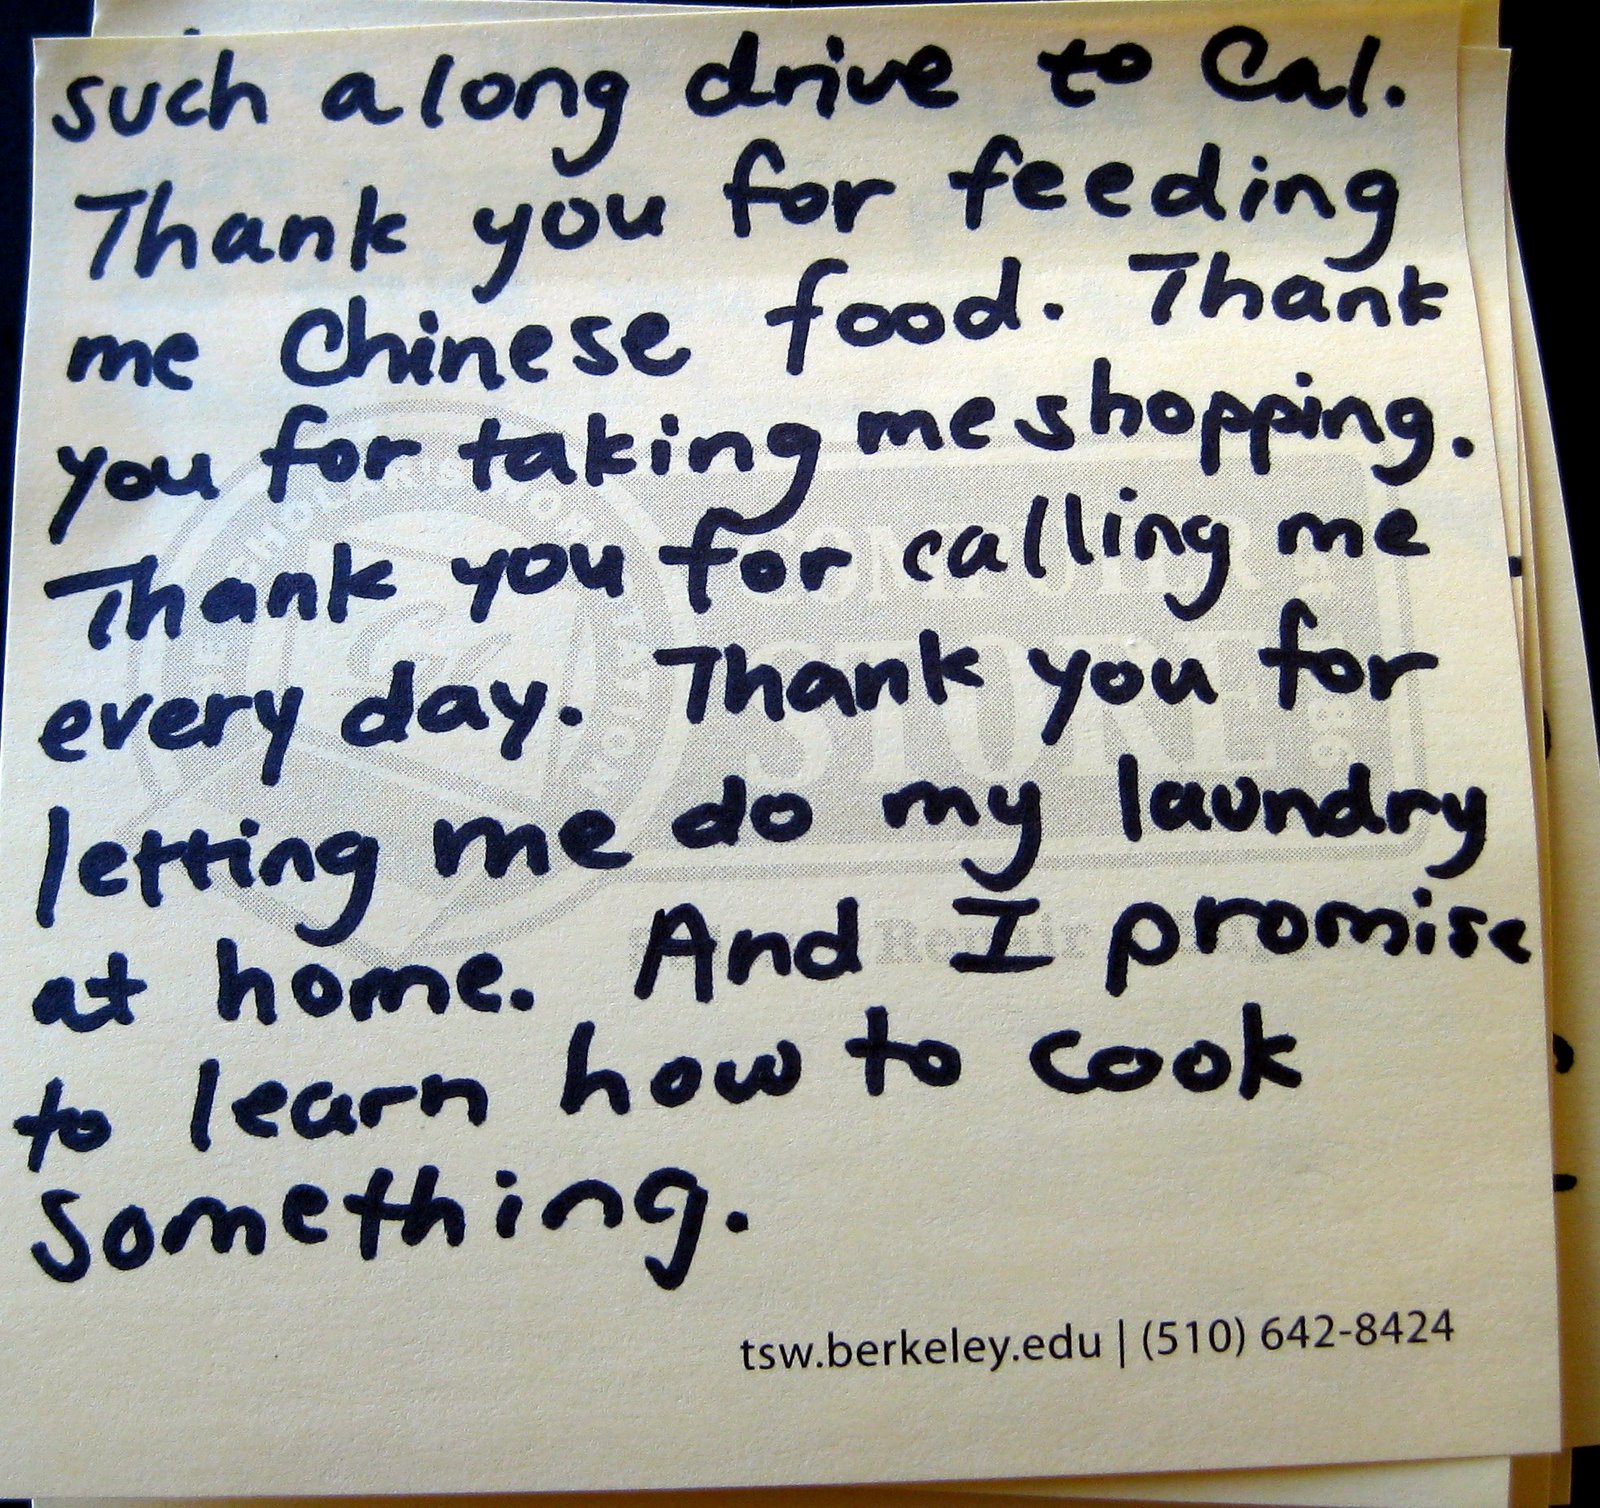 such a long drive to Cal.
Thank you for feeding
me Chinese food. Thank
you for taking me shopping.
Thank you for calling me
every day. Thank you for
letting me do my laundry
at home. And I promise
to learn how to cook
something.
THE SCHOLAR'S WORKSTATION
COMPUTER
STORE
Repair
tsw.berkeley.edu | (510) 642-8424